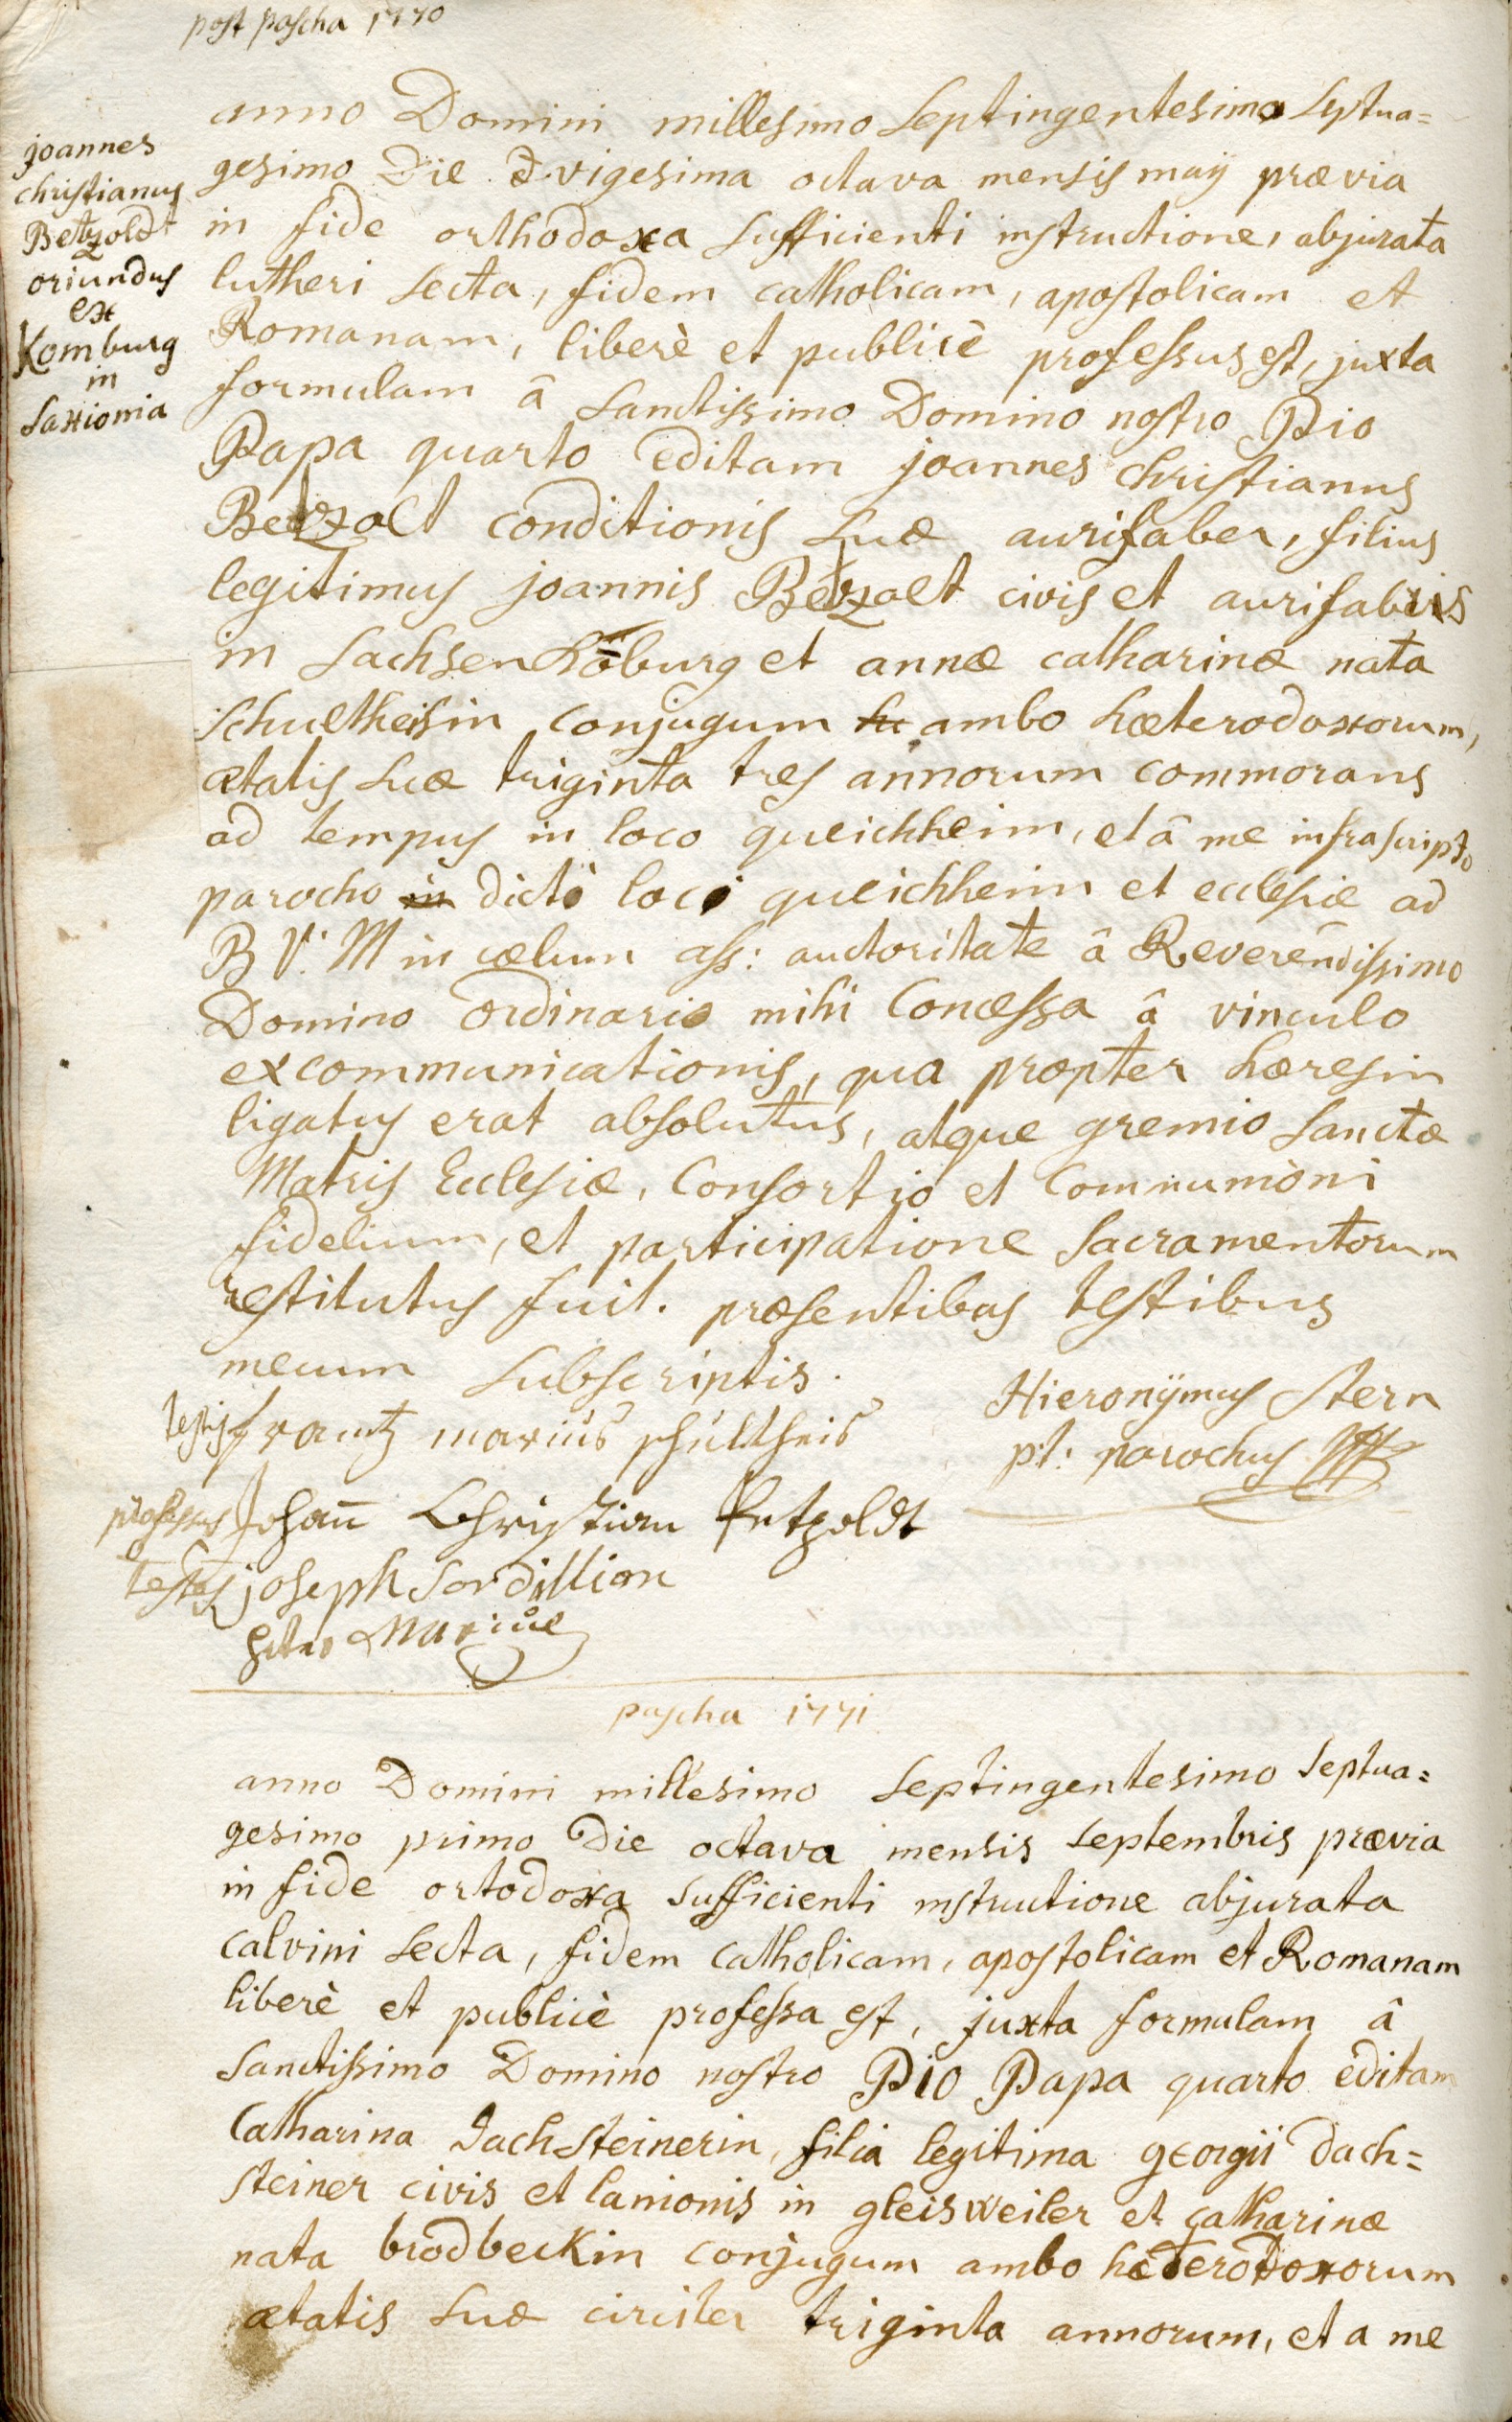 post pascha 1770
joannes
christianus
Betzoldt
oriundus
ex
Komburg
in
Saxionia
anno Domini millesimo Septingentesimo Septua=
gesimo Die vigesima octava mensis maÿ prævia
in fide orthodoxa sufficienti instructione, abjurata
lutheri secta, fidem catholicam, apostolicam et
Romanam, liberè et publicè professus est, juxta
formulam â Sanctissimo Domino nostro Pio
Papa quarto editam joannes christianus
Betzolt conditionis suæ aurifaber, filius
legitimus joannis Betzolt civis et aurifabris
in Sachsen Koburg et annæ catharinæ nata
schultheisin conjugum ambo hæterodoxorum,
ætatis suæ triginta tres annorum commorans
ad tempus in loco queichheim, et â me infrascripto
parocho in dicti loci queichheim et ecclesiæ ad
B V. M in cœlum ass: auctoritate â Reverendissimo
Domino ordinario mihi Concessa â vinculo
excommunicationis, qua propter hæresin
ligatus erat absolutus, atque gremio Sanctæ
Matris Ecclesiæ, Consortio et Communioni
fidelium, et participatione Sacramentorum
restitutus fuit. præsentibus testibus
mecum Subscriptis.
testis frantz marius schultheis
Hieronÿmus Stern
p.t: parochus
professus Johann Christian Petzoldt
testes joseph Sordillion
Peter Marius
pascha 1771
anno Domini millesimo Septingentesimo Septua=
gesimo primo Die octava mensis Septembris prævia
in fide ortodoxa sufficienti instructione abjurata
calvini secta, fidem catholicam, apostolicam et Romanam
liberè et publicè professa est, juxta formulam â
Sanctissimo Domino nostro Pio Papa quarto editam
Catharina Dachsteinerin, filia legitima georgii Dach=
steiner civis et lanionis in gleisweiler et catharinæ
nata brodbeckin conjugum ambo hæterodoxorum
ætatis suæ circiter triginta annorum, et a me